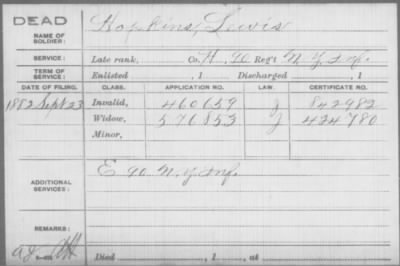 DEAD
NAME OF SOLDIER: Hopkins, Lewis
SERVICE: Late rank, Co. H, 90 Reg't N. Y. Inf.
TERM OF SERVICE: Enlisted , 1 Discharged , 1
DATE OF FILING. CLASS. APPLICATION NO. LAW. CERTIFICATE NO.
1882 Sept 23 Invalid, 460659 J 842982
Widow, 576853 J 424780
Minor,
ADDITIONAL SERVICES: E 90 N.Y. Inf.
REMARKS:
Died , 1 , at